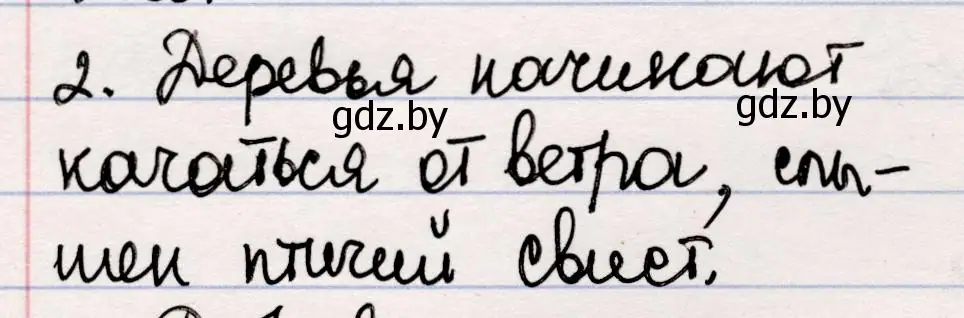 2. Деревья начинают
gdz.by
gdz.by
качаться от ветра, слы-
шен птичий свист.